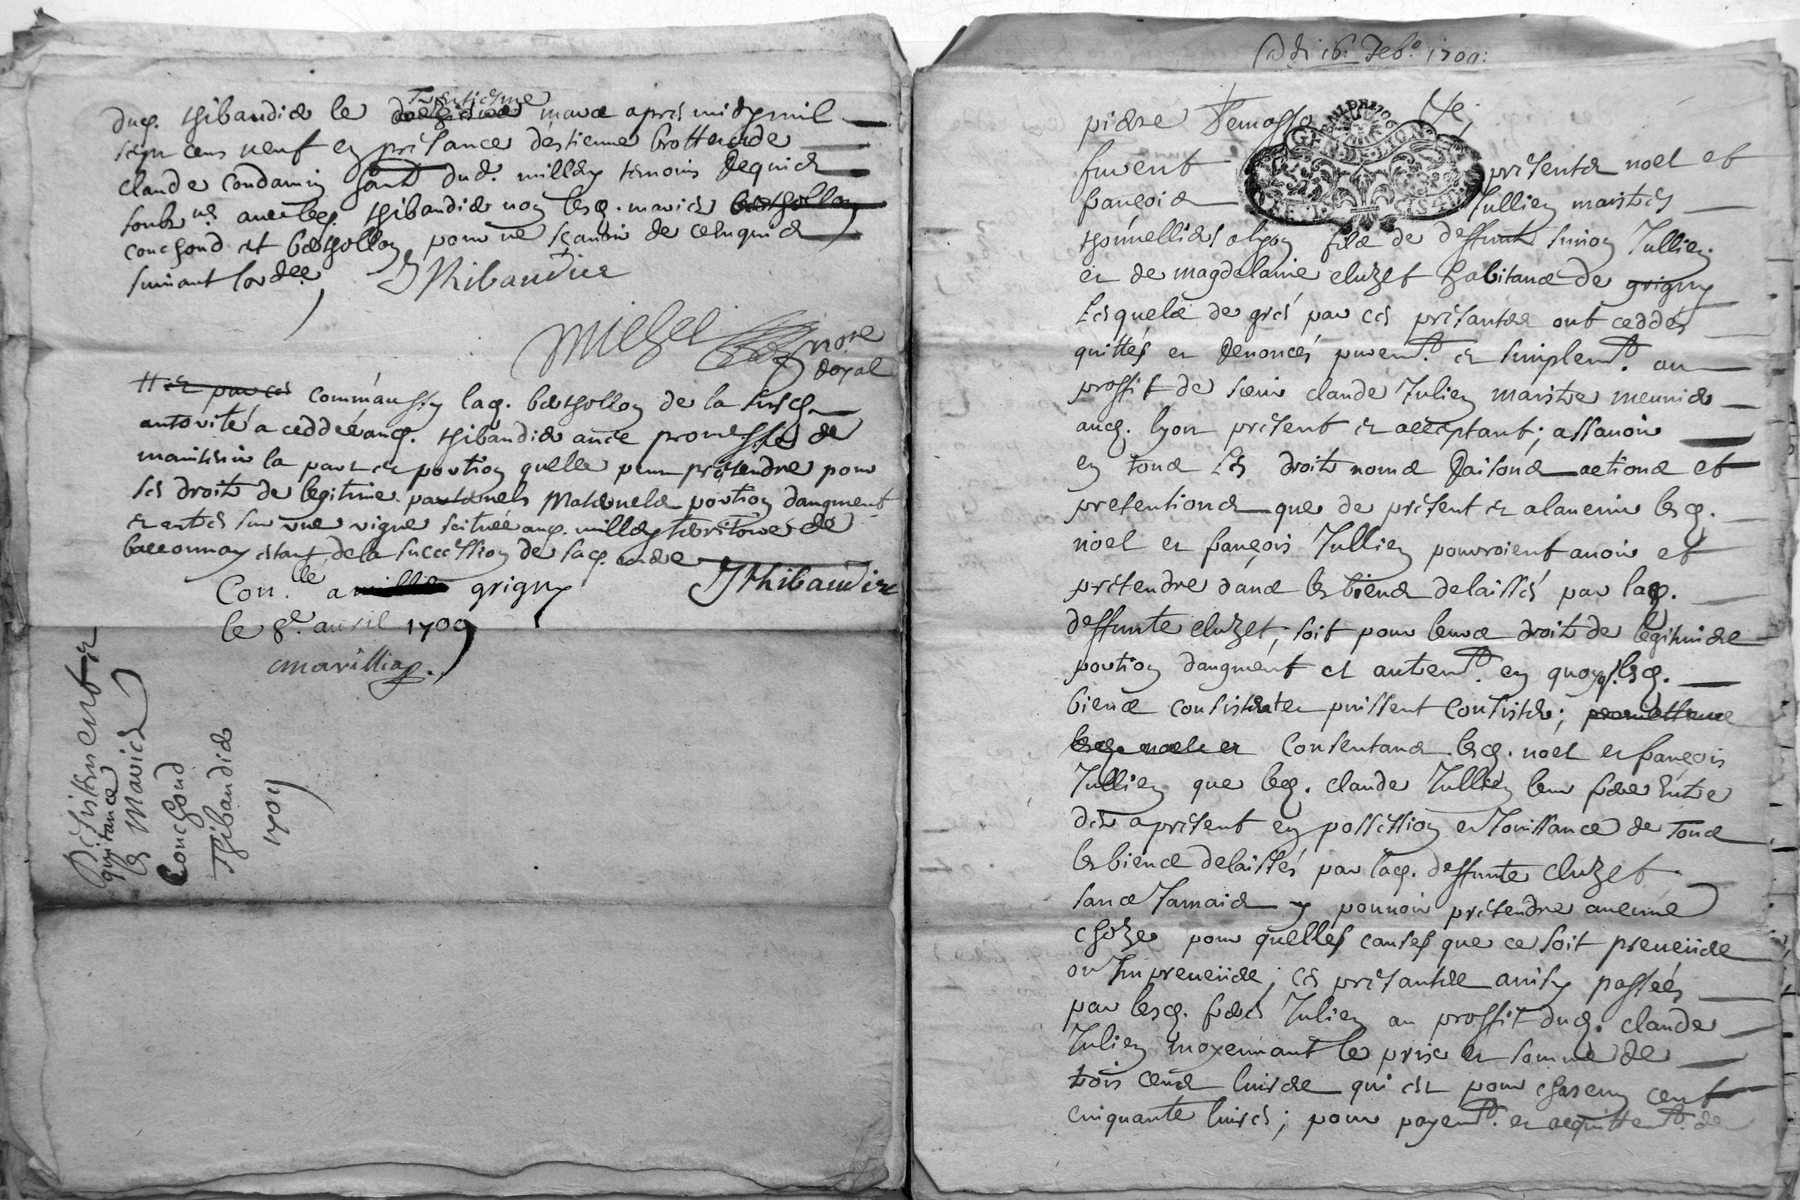 dud. thibaudier le trentiesme mars apres midy mil
sept cens neuf en présance d'estienne brottet de
claude condamin dud. millery temoins requis
soubz.nés avec led. thibaudier non lesd. mariés
couchoud et berthollon pour ne sçavoir de ce enquis
suivant l'ord.ce
J Thibaudier
Michel
no.re
royal
et par ces comme aussy lad. berthollon de la susd.
autorité a ceddé aud. thibaudier avec promesse de
maintenir la part et portion quelle peut prétendre pour
ses droits de legitime paternels maternels portion d'augment
et autres sur une vigne scituée aud. millery territoire de
ballonnay estant de la succession de sad. mere
J Thibaudier
Con.llé a grigny
le 8e. avril 1709
marillier
quitance
les mariés
Couchoud
Thibaudier
1709
Du 16. feb.o 1700:
pierre
furent présents noel et
françois Jullien maistres
thonnelliers a lyon fils de deffunt simon Jullien
et de magdelaine cluzet habitans de grigny
Lesquels de grés par ces présantes ont ceddés
quittés et renoncés purem.t et simplem.t au
proffit de sieur claude Julien maistre meunier
aud. lyon présent et acceptant; assavoir
en tous les droits noms raisons actions et
pretentions que de présent et a lavenir lesd.
noel et françois Jullien pourroient avoir et
prétendre dans les biens delaissés par lad.
deffunte cluzet, soit pour leurs droits de legitime
portion d'augment et autrem.t en quoy q. lesd.
biens consistent et puissent consister; promettans
lesd. noel et Consentans lesd. noel et françois
Jullien que led. claude Jullien leur frere entre
dès a présent en possession et Jouissance de tous
les biens delaissés par lad. deffunte cluzet
sans Jamais y pouvoir prétendre aucune
choze pour quelles causes que ce soit preveüe
ou Impreveüe; ces présantes ainsy passées
par lesd. freres Julien au proffit dud. claude
Julien moyennant le prix et somme de
trois cens livres qui est pour chascun cent
cinquante livres; pour payem.t et acquittem.t de